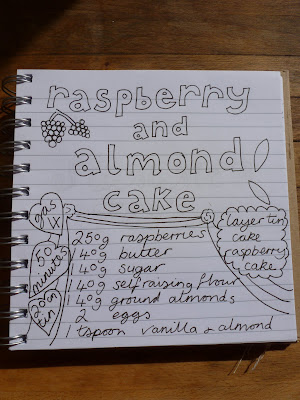 raspberry
and
almond
cake
gas
4
50
minutes
20cm
tin
layer tin
cake
raspberry
cake
250g raspberries
140g butter
140g sugar
140g self raising flour
140g ground almonds
2 eggs
1 tspoon vanilla & almond